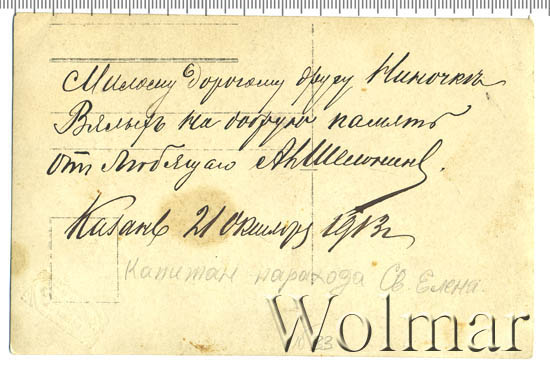 Милому дорогому другу Ниночкѣ
Вялыхъ на добрую память
отъ любящаго
Казань 21 Октября 1913 г
Капитан парахода Св. Елена.
Wolmar